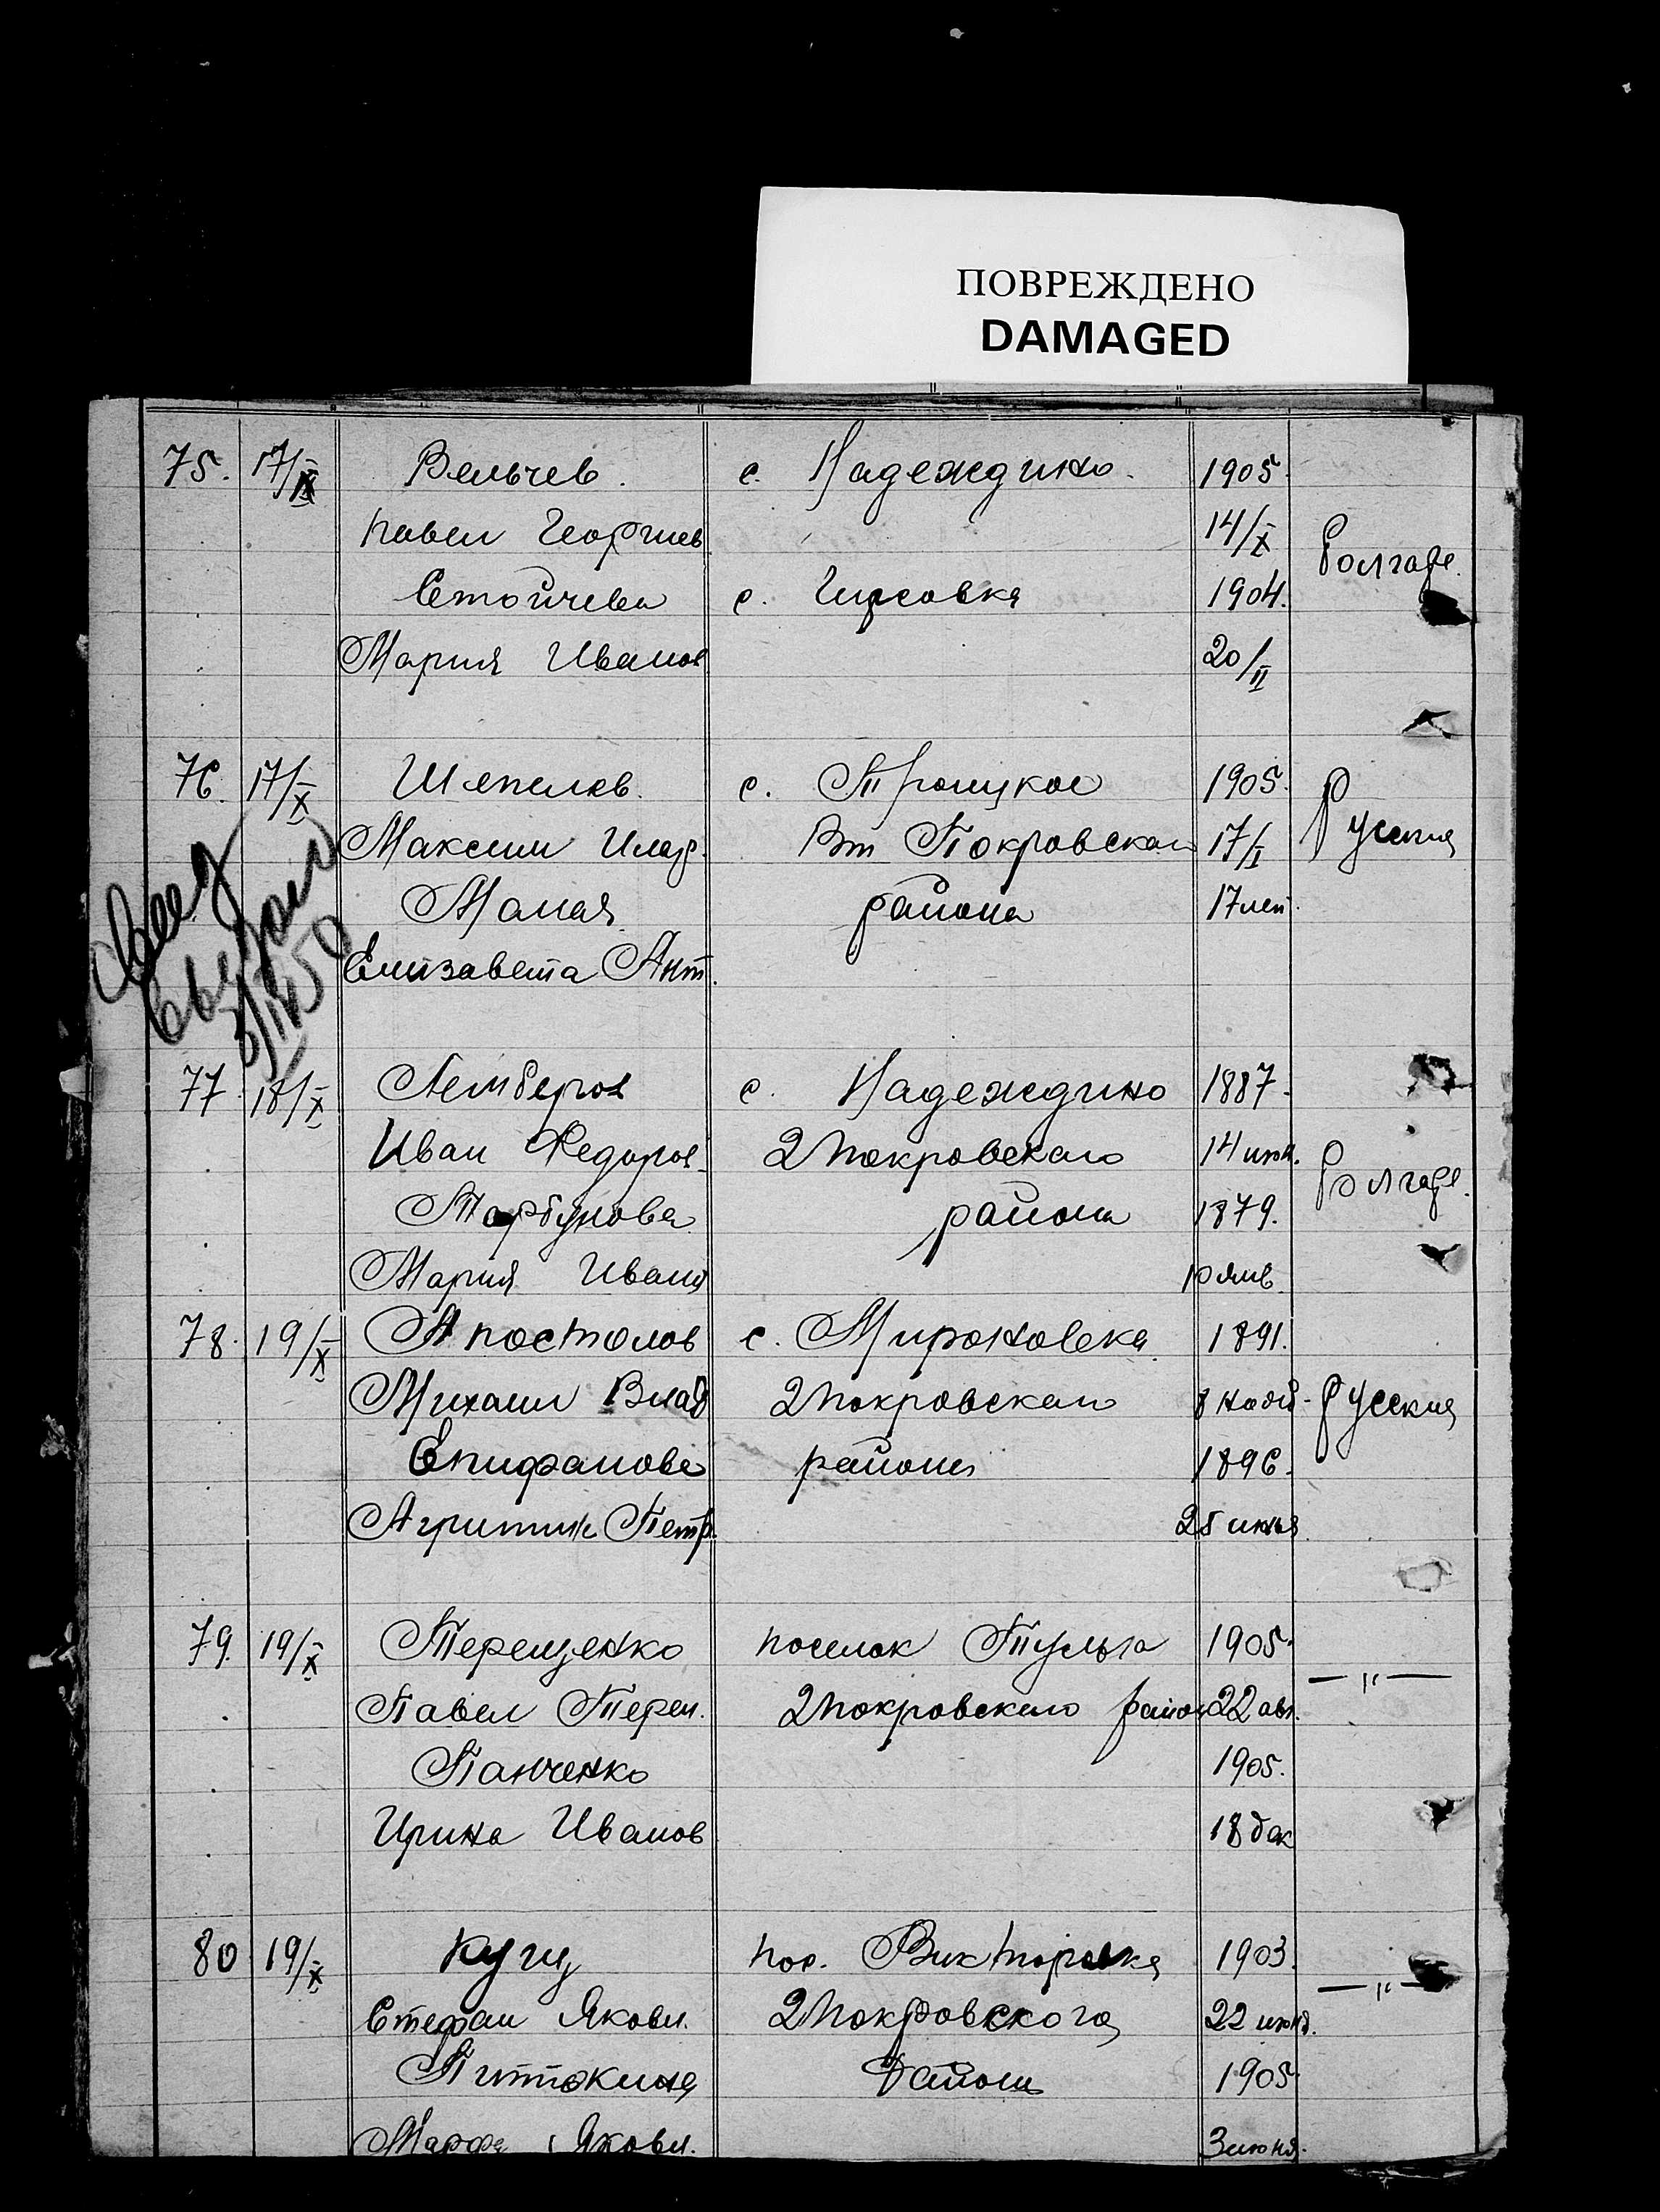 ПОВРЕЖДЕНО
DAMAGED
75. 17/X Вельчев. с. Надеждино. 1905.
Павел Георгиев 14/X Болгаре.
Стойчева с. Гирсовка 1904.
Мария Иванов 20/II
76. 17/X Шепелев. с. Троицкое 1905. Русския
Максим Илар. Вт Покровскаго 17/I
Малая района 17 лет.
Елизавета Ант.
77 18/X с. Надеждино 1887.
Иван Федоров. 2 Покровскаго 14 июн. Болгаре.
района 1879.
Мария Иван 10 янв.
78. 19/X Апостолов с. Мироновка 1891.
Михаил Влад 2 Покровскаго 8 нояб- Русския
Епифанова района 1896.
Петр. 25 июня
79. 19/X Терещенко поселок 1905. — " —
Павел Терен. 2 Покровского район 22 авг.
Панченко 1905.
Ирина Иванов 18 дек
80 19/X Куги, пос. Викторовка 1903. — " —
Стефан Яковл. 2 Покровского 22 июня.
района 1905
Марфа Яковл. 3 июня.